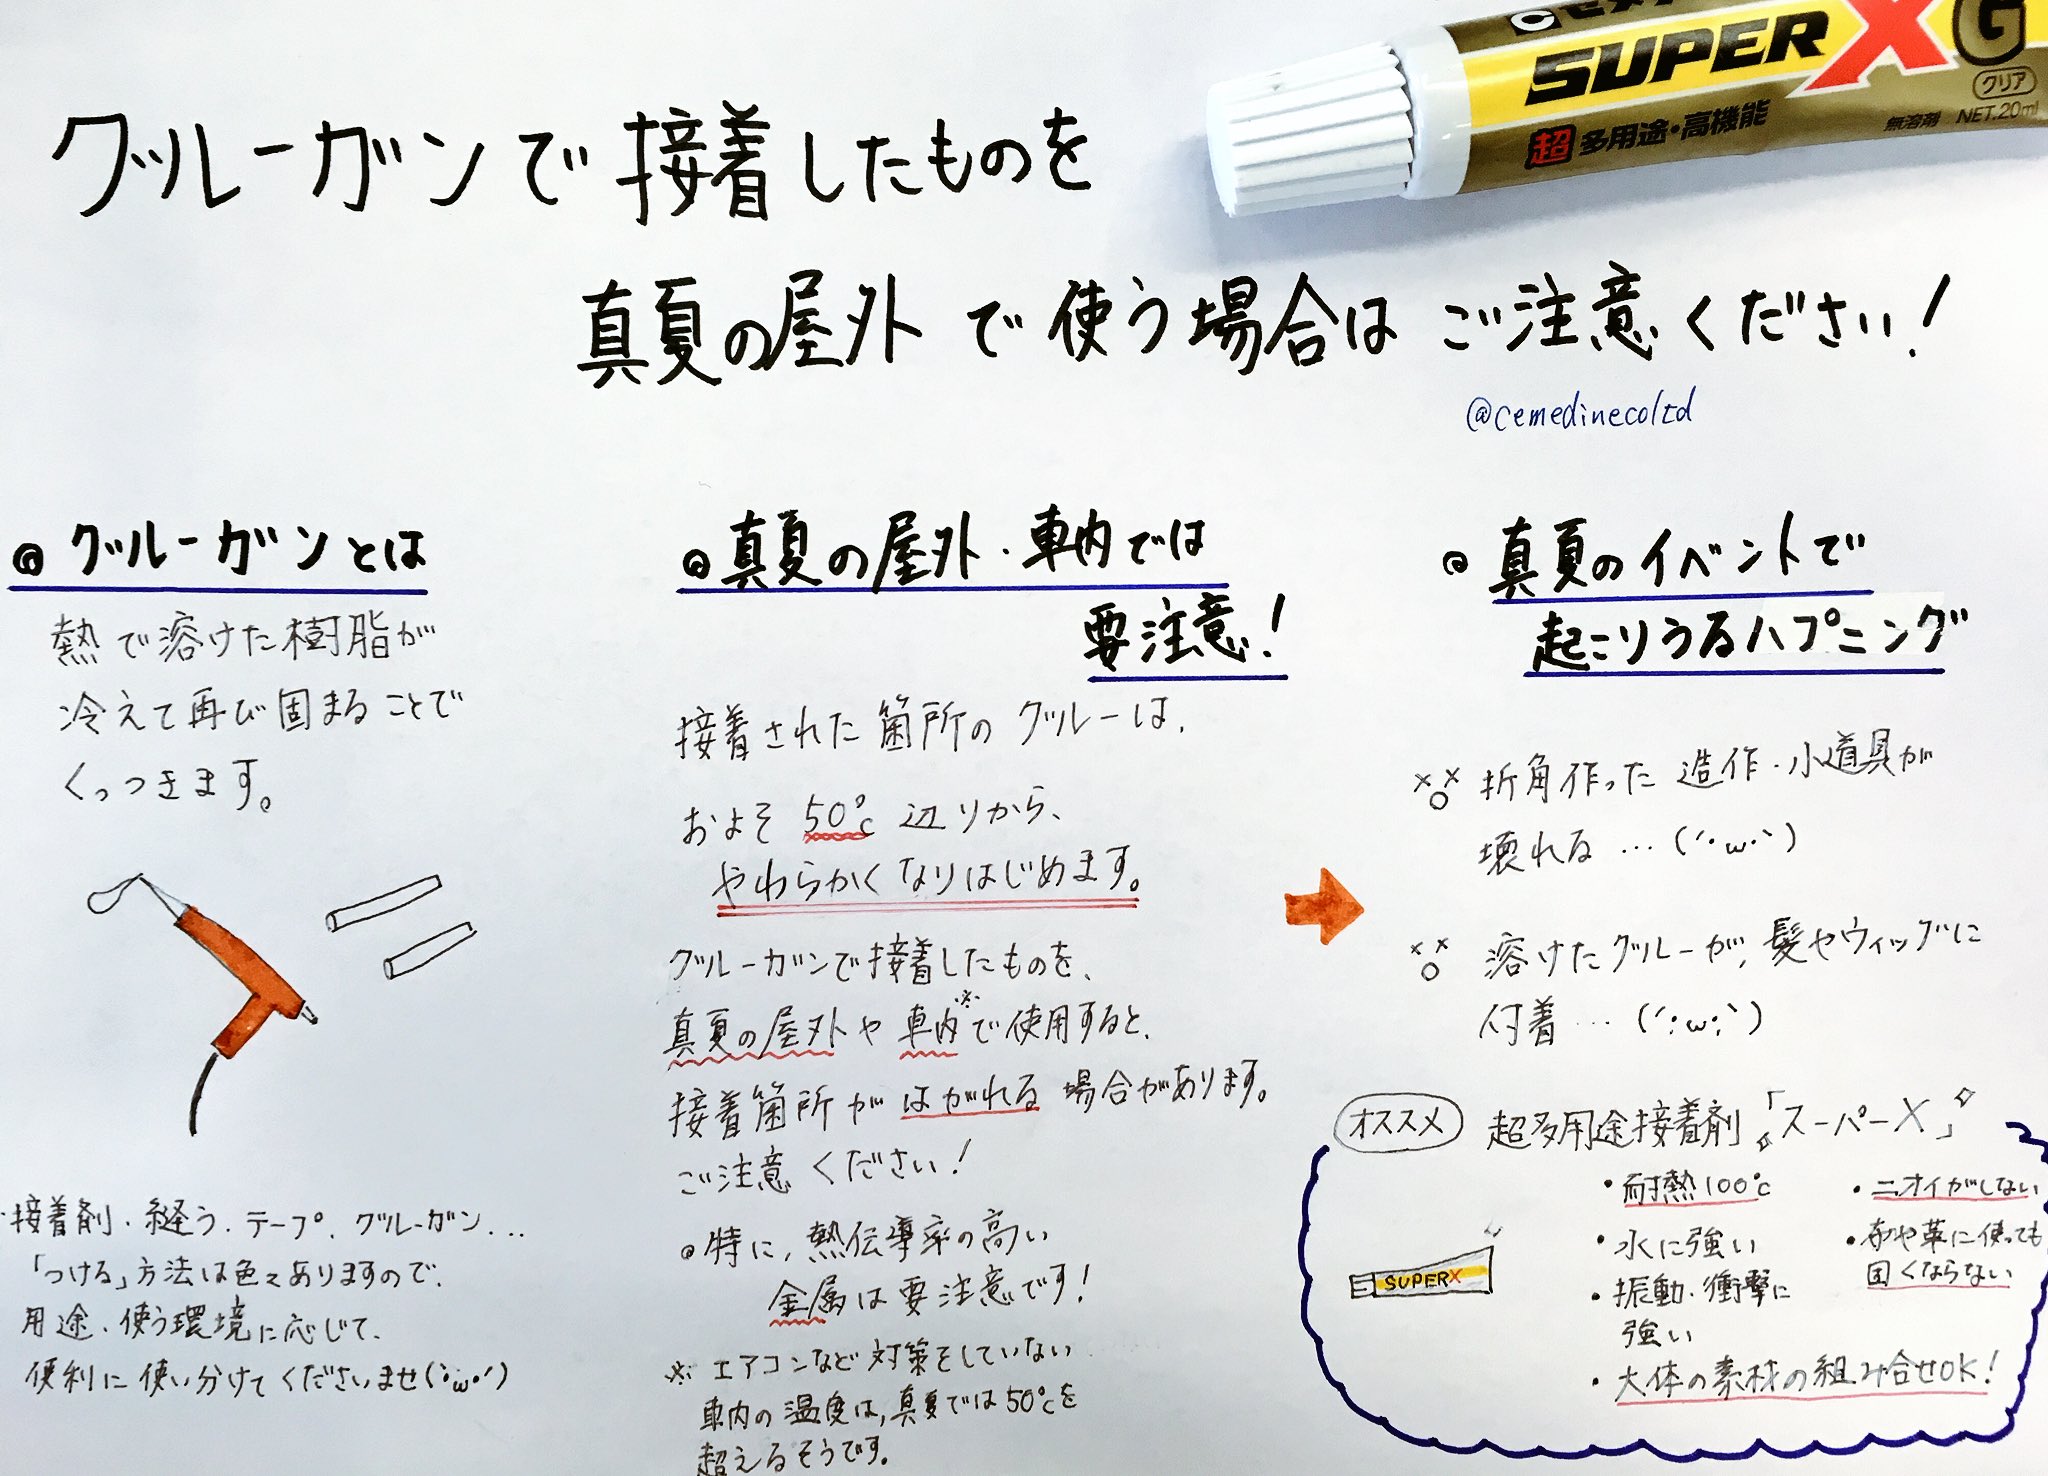 SUPER XG
クリア
超多用途・高機能
無溶剤 NET.20ml
グルーガンで接着したものを
真夏の屋外で使う場合はご注意ください!
@cemedinecoltd
◎グルーガンとは
熱で溶けた樹脂が
冷えて再び固まることで
くっつきます。
接着剤・縫う・テープ、グルーガン...
「つける」方法は色々ありますので、
用途・使う環境に応じて、
便利に使い分けてくださいませ(・ω・´)
◎真夏の屋外・車内では
要注意!
接着された箇所のグルーは、
およそ50℃辺りから、
やわらかくなりはじめます。
グルーガンで接着したものを、
真夏の屋外や車内※で使用すると、
接着箇所がはがれる場合があります。
ご注意ください!
◎特に、熱伝導率の高い
金属は要注意です!
※エアコンなど対策をしていない
車内の温度は、真夏では50℃を
超えるそうです。
◎真夏のイベントで
起こりうるハプニング
折角作った造作・小道具が
壊れる...(´・ω・`)
溶けたグルーが、髪やウィッグに
付着...(´;ω;`)
オススメ 超多用途接着剤「スーパーX」
・耐熱100℃
・水に強い
・振動・衝撃に
強い
・大体の素材の組み合せOK!
・ニオイがしない
・布や革に使っても
固くならない
SUPERX